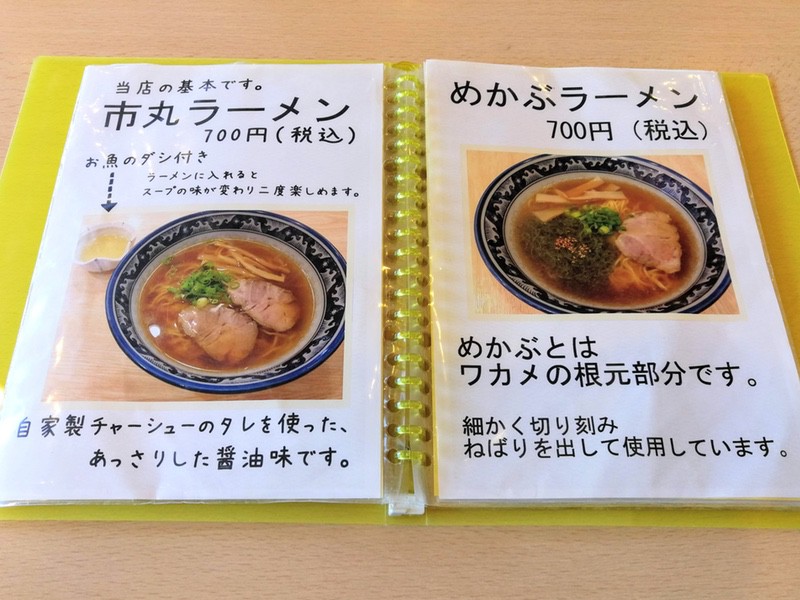 当店の基本です。
市丸ラーメン
700円(税込)
お魚のダシ付き
ラーメンに入れると
スープの味が変わり二度楽しめます。
自家製チャーシューのタレを使った、
あっさりした醤油味です。
めかぶラーメン
700円 (税込)
めかぶとは
ワカメの根元部分です。
細かく切り刻み
ねばりを出して使用しています。